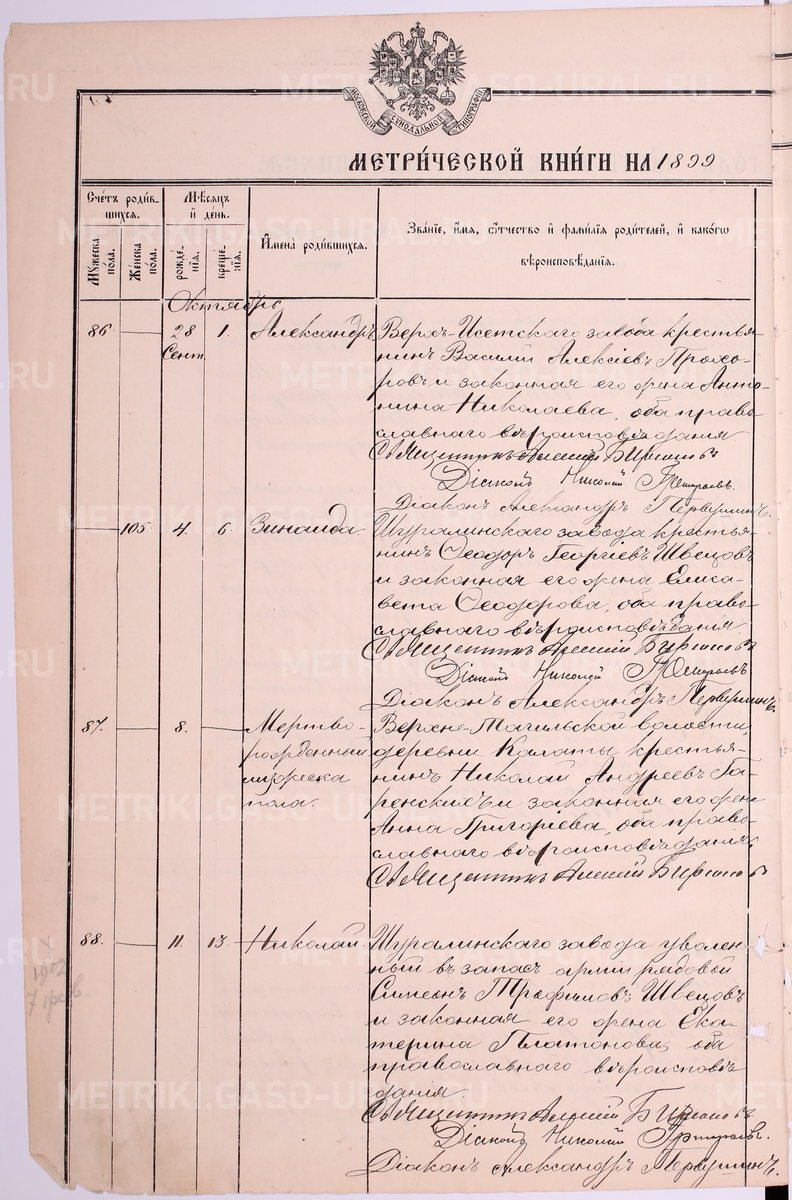 МОСКОВСКОЙ СѴНОДАЛЬНОЙ ТИПОГРАФІИ
МЕТРИ́ЧЕСКОЙ КНИ́ГИ НА 1899
Счетъ роди́в-
шихся.
Мѣсяцъ
и҆ де́нь.
Мꙋ́жеска по́ла.
Же́нска по́ла.
рожде́-
нїя.
креще́-
нїя.
И҆мена̀ роди́вшихся.
Зва́нїе, и҆́мя, ѻ҆́тчество и҆ фами́лїя роди́телей, и҆ како́гѡ
вѣроисповѣ́данїя.
Октябрь
86 28 1. Александръ Верхъ-Исетскаго завода крестья-
Сент. нинъ Василій Алексіевъ Прохо-
ровъ и законная его жена Анто-
нина Николаева, оба право-
славнаго вѣроисповѣданія
Священникъ Алексій
Діаконъ Николай
Діаконъ Александръ Первушинъ.
105 4. 6. Зинаида Шуралинскаго завода крестья-
нинъ Ѳеодоръ Георгіевъ Швецовъ
и законная его жена Елиса-
вета Ѳеодорова, оба право-
славнаго вѣроисповѣданія.
Священникъ Алексій
Діаконъ Николай
Діаконъ Александръ Первушинъ.
87. 8. Мертво- Верхне-Тагильской волости,
рожденный деревни Калаты крестья-
мужеска нинъ Николай Андреевъ Га-
пола. ренскихъ и законная его жена
Анна Григоріева, оба право-
славнаго вѣроисповѣданія
Священникъ Алексій
88. 11. 13. Николай Шуралинскаго завода уволен-
ный въ запасъ арміи рядовой
1902 Симеонъ Трофимовъ Швецовъ
7 фев. и законная его жена Ека-
терина Платонова, оба
православнаго вѣроисповѣ-
данія
Священникъ Алексій
Діаконъ Николай
Діаконъ Александръ Первушинъ.
METRIKI.GASO-URAL.RU